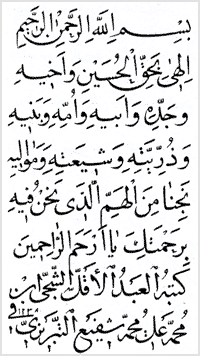 بِسْمِ اللَّهِ الرَّحْمٰنِ الرَّحِيمِ
الٰهى بِحَقِّ الحُسَيْنِ وَاَخيهِ
وَجَدِّهِ وَاَبيهِ وَاُمِّهِ وَبَنيهِ
وَذُرِّيَّتِهِ وَشيعَتِهِ وَمَوٰاليهِ
نَجِّنٰا مِنَ الهَمِّ الَّذى نَحْنُ فيهِ
بِرَحْمَتِكَ يٰا اَرْحَمَ الرّٰاحِمينَ
كَتَبَهُ العَبْدُ الاَقَلّ
مُحَمَّد عَلى مُحَمَّد شَفيع التَّبريزى فى